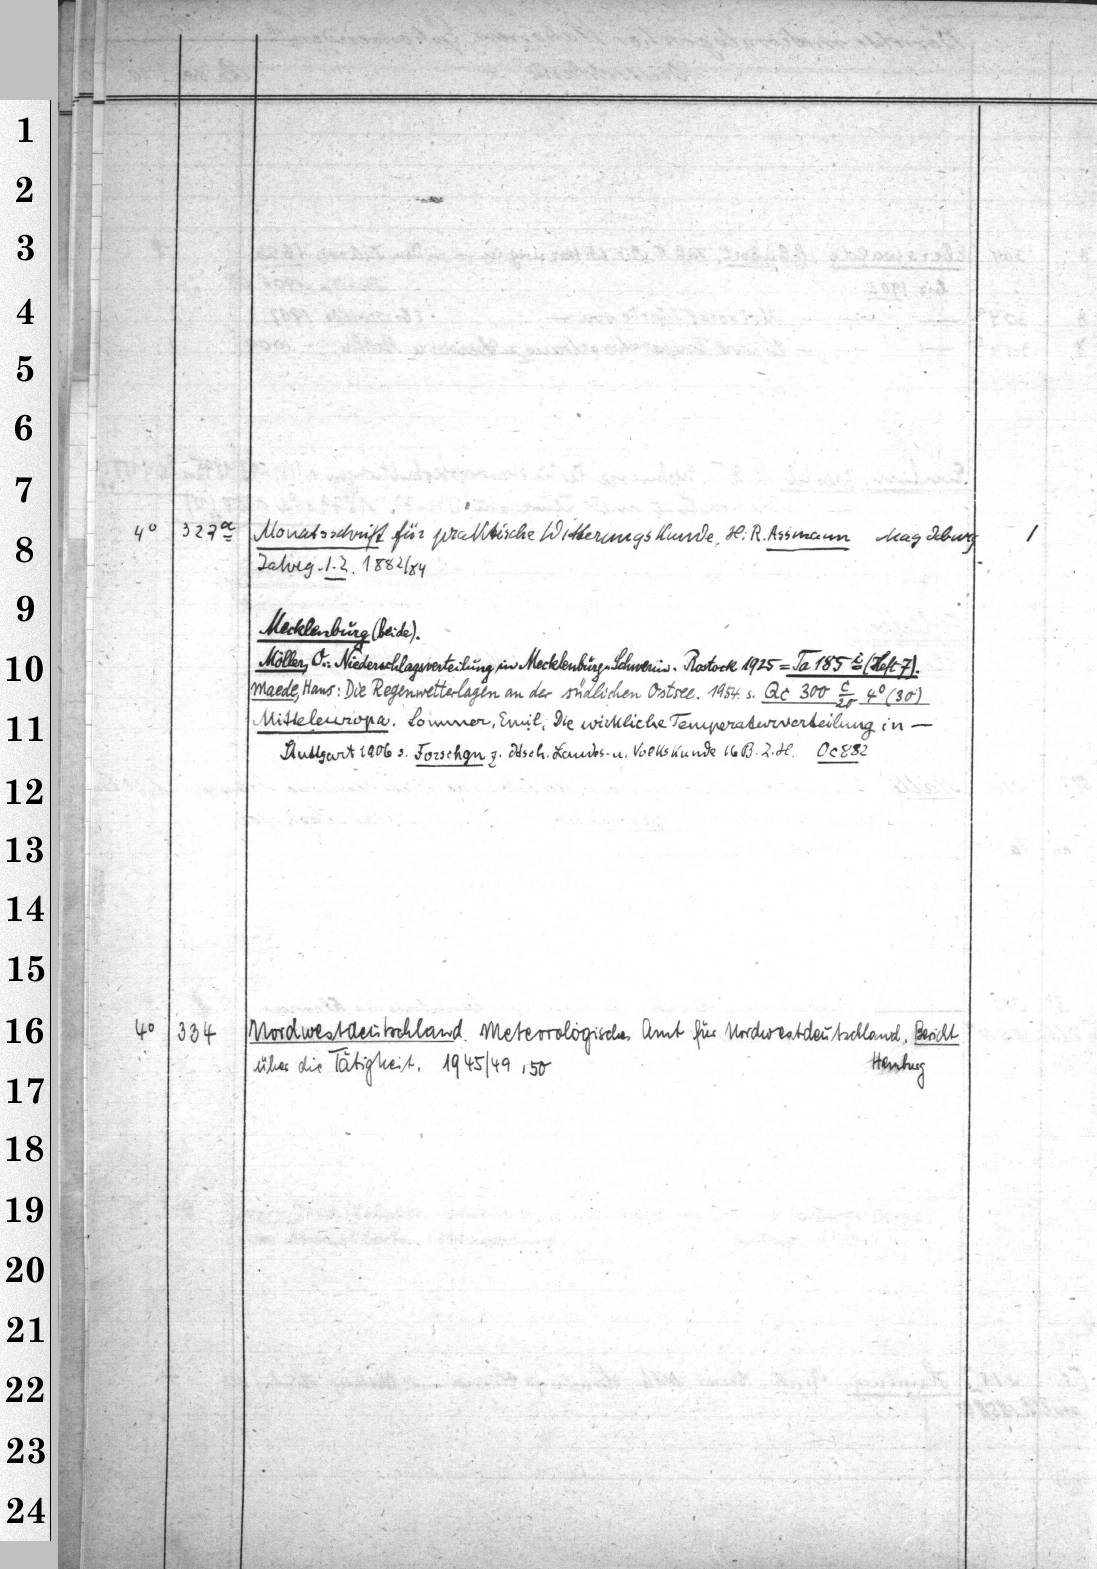 1
2
3
4
5
6
7
8
9
10
11
12
13
14
15
16
17
18
19
20
21
22
23
24
4° 327a Monatsschrift für praktische Witterungskunde. H: R. Assmann Magdeburg 1
Jahrg. 1.2. 1882/84
Mecklenburg (beide).
Möller, O.: Niederschlagsverteilung in Mecklenburg-Schwerin. Rostock 1925 = Ta 185 i (Heft 7).
Maede, Hans: Die Regenwetterlagen an der südlichen Ostsee. 1954 s. Qc 300 c/20 4° (30)
Mitteleuropa. Sommer, Emil, Die wirkliche Temperaturverteilung in —
Stuttgart 1906 s. Forschgn z. dtsch. Landes- u. Volkskunde 16 B. 2. H. Oc 882
4° 334 Nordwestdeutschland. Meteorologisches Amt für Nordwestdeutschland. Bericht
über die Tätigkeit. 1945/49, 50 Hamburg